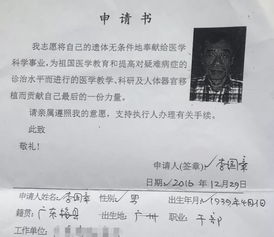 申请书
我志愿将自己的遗体无条件地奉献给医学
科学事业,为祖国医学教育和提高对疑难病症的
诊治水平而进行的医学教学、科研及人体器官移
植而贡献自己最后的一份力量。
请亲属遵照我的意愿,支持执行人办理有关手续。
此致
敬礼!
申请人(签章):李国章
日期:2016年12月29日
申请人姓名 李国章 性别: 男 出生年月:1939年4月1日
籍贯:广东 出生地 广州 职业:干部
工作单位: